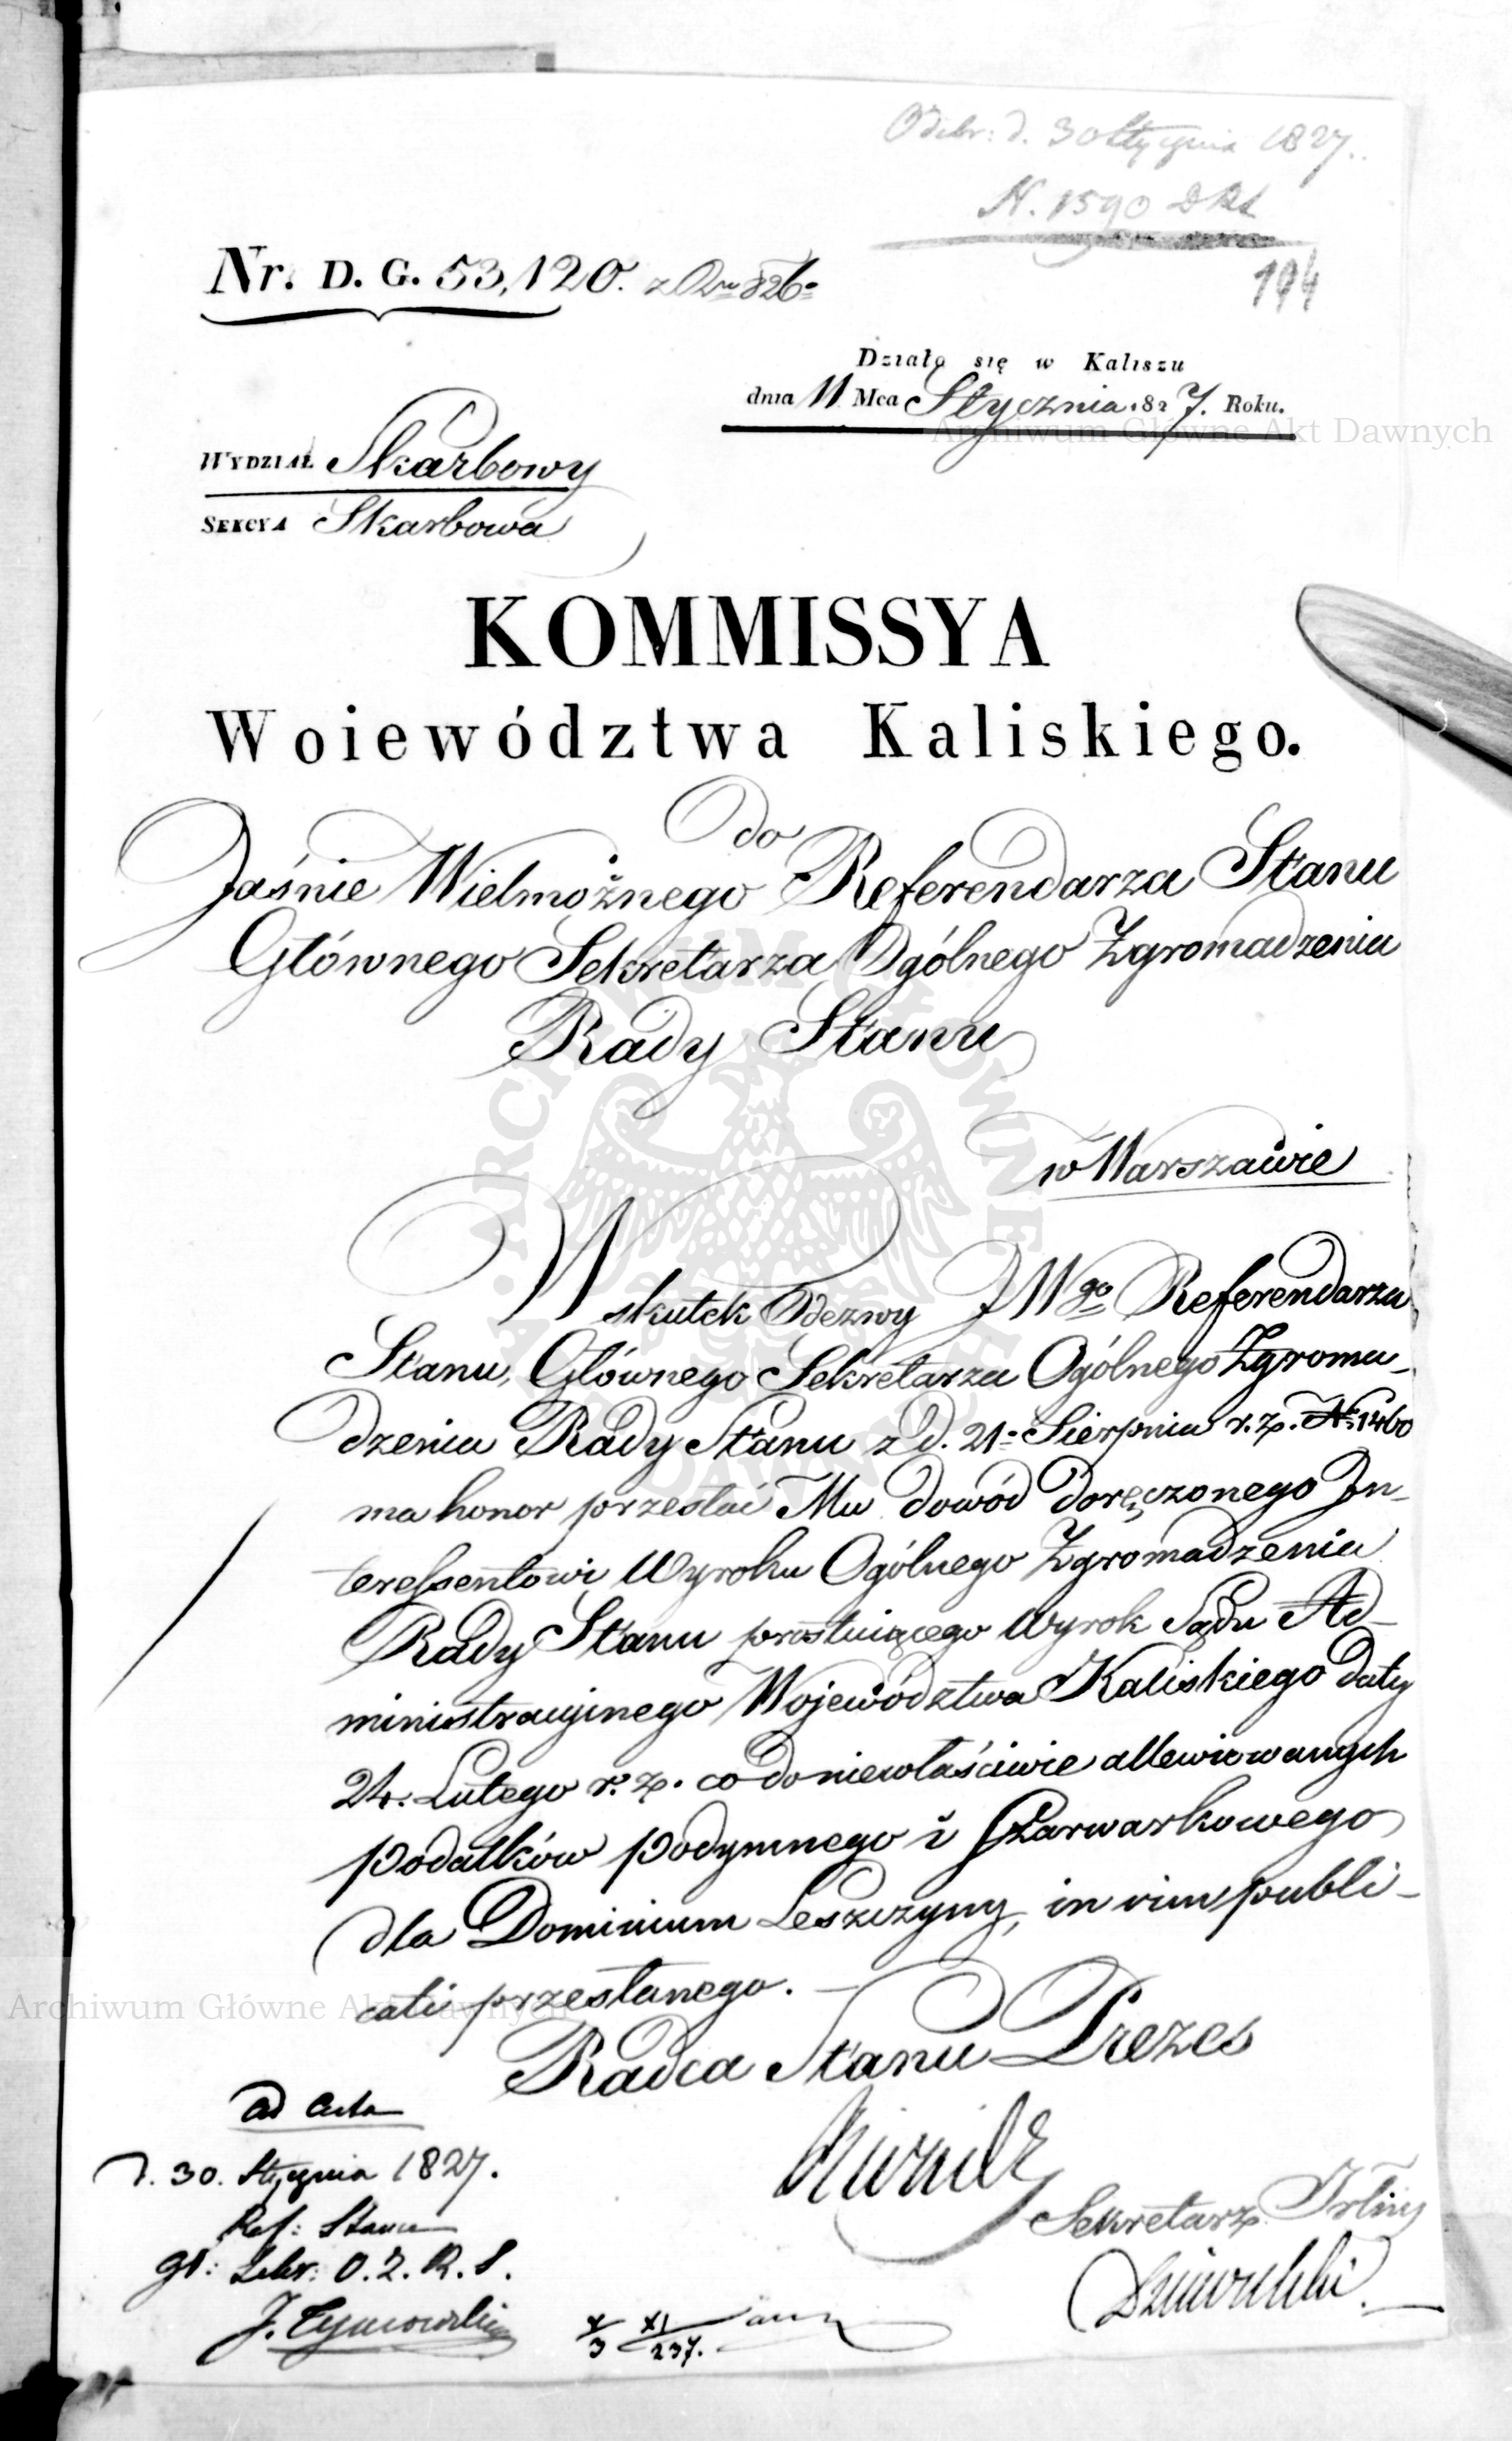 Odebr: d. 30 Stycznia 1827.
N. 1590
194
Nr. D. G. 53,120.
Działo się w Kaliszu
dnia 11 Mca Stycznia 1827. Roku.
Archiwum Główne Akt Dawnych
WYDZIAŁ Skarbowy
SEKCYA Skarbowa
KOMMISSYA
Woiewództwa Kaliskiego.
do
Jaśnie Wielmożnego Referendarza Stanu
Głównego Sekretarza Ogólnego Zgromadzenia
Rady Stanu
w Warszawie
W skutek Odezwy JWgo Referendarza
Stanu, Głównego Sekretarza Ogólnego Zgroma-
dzenia Rady Stanu z d. 21 Sierpnia r. z. N: 1460
ma honor przesłać Mu dowód doręczonego In-
teressentowi Wyroku Ogólnego Zgromadzenia
Rady Stanu prostuiącego Wyrok Sądu Ad-
ministracyjnego Województwa Kaliskiego daty
24. Lutego r. z. co do niewłaściwie allewiowanych
podatków podymnego i Szarwarkowego
dla Dominium Leszczyny, in vim publi-
cati przesłanego.
Archiwum Główne Akt Dawnych
Radca Stanu Prezes
Sekretarz
ad acta
d. 30. Stycznia 1827.
Ref: Stanu
Gł: Sekr: O. Z. R. S.
J. Tymowski
X/3 XI/237.